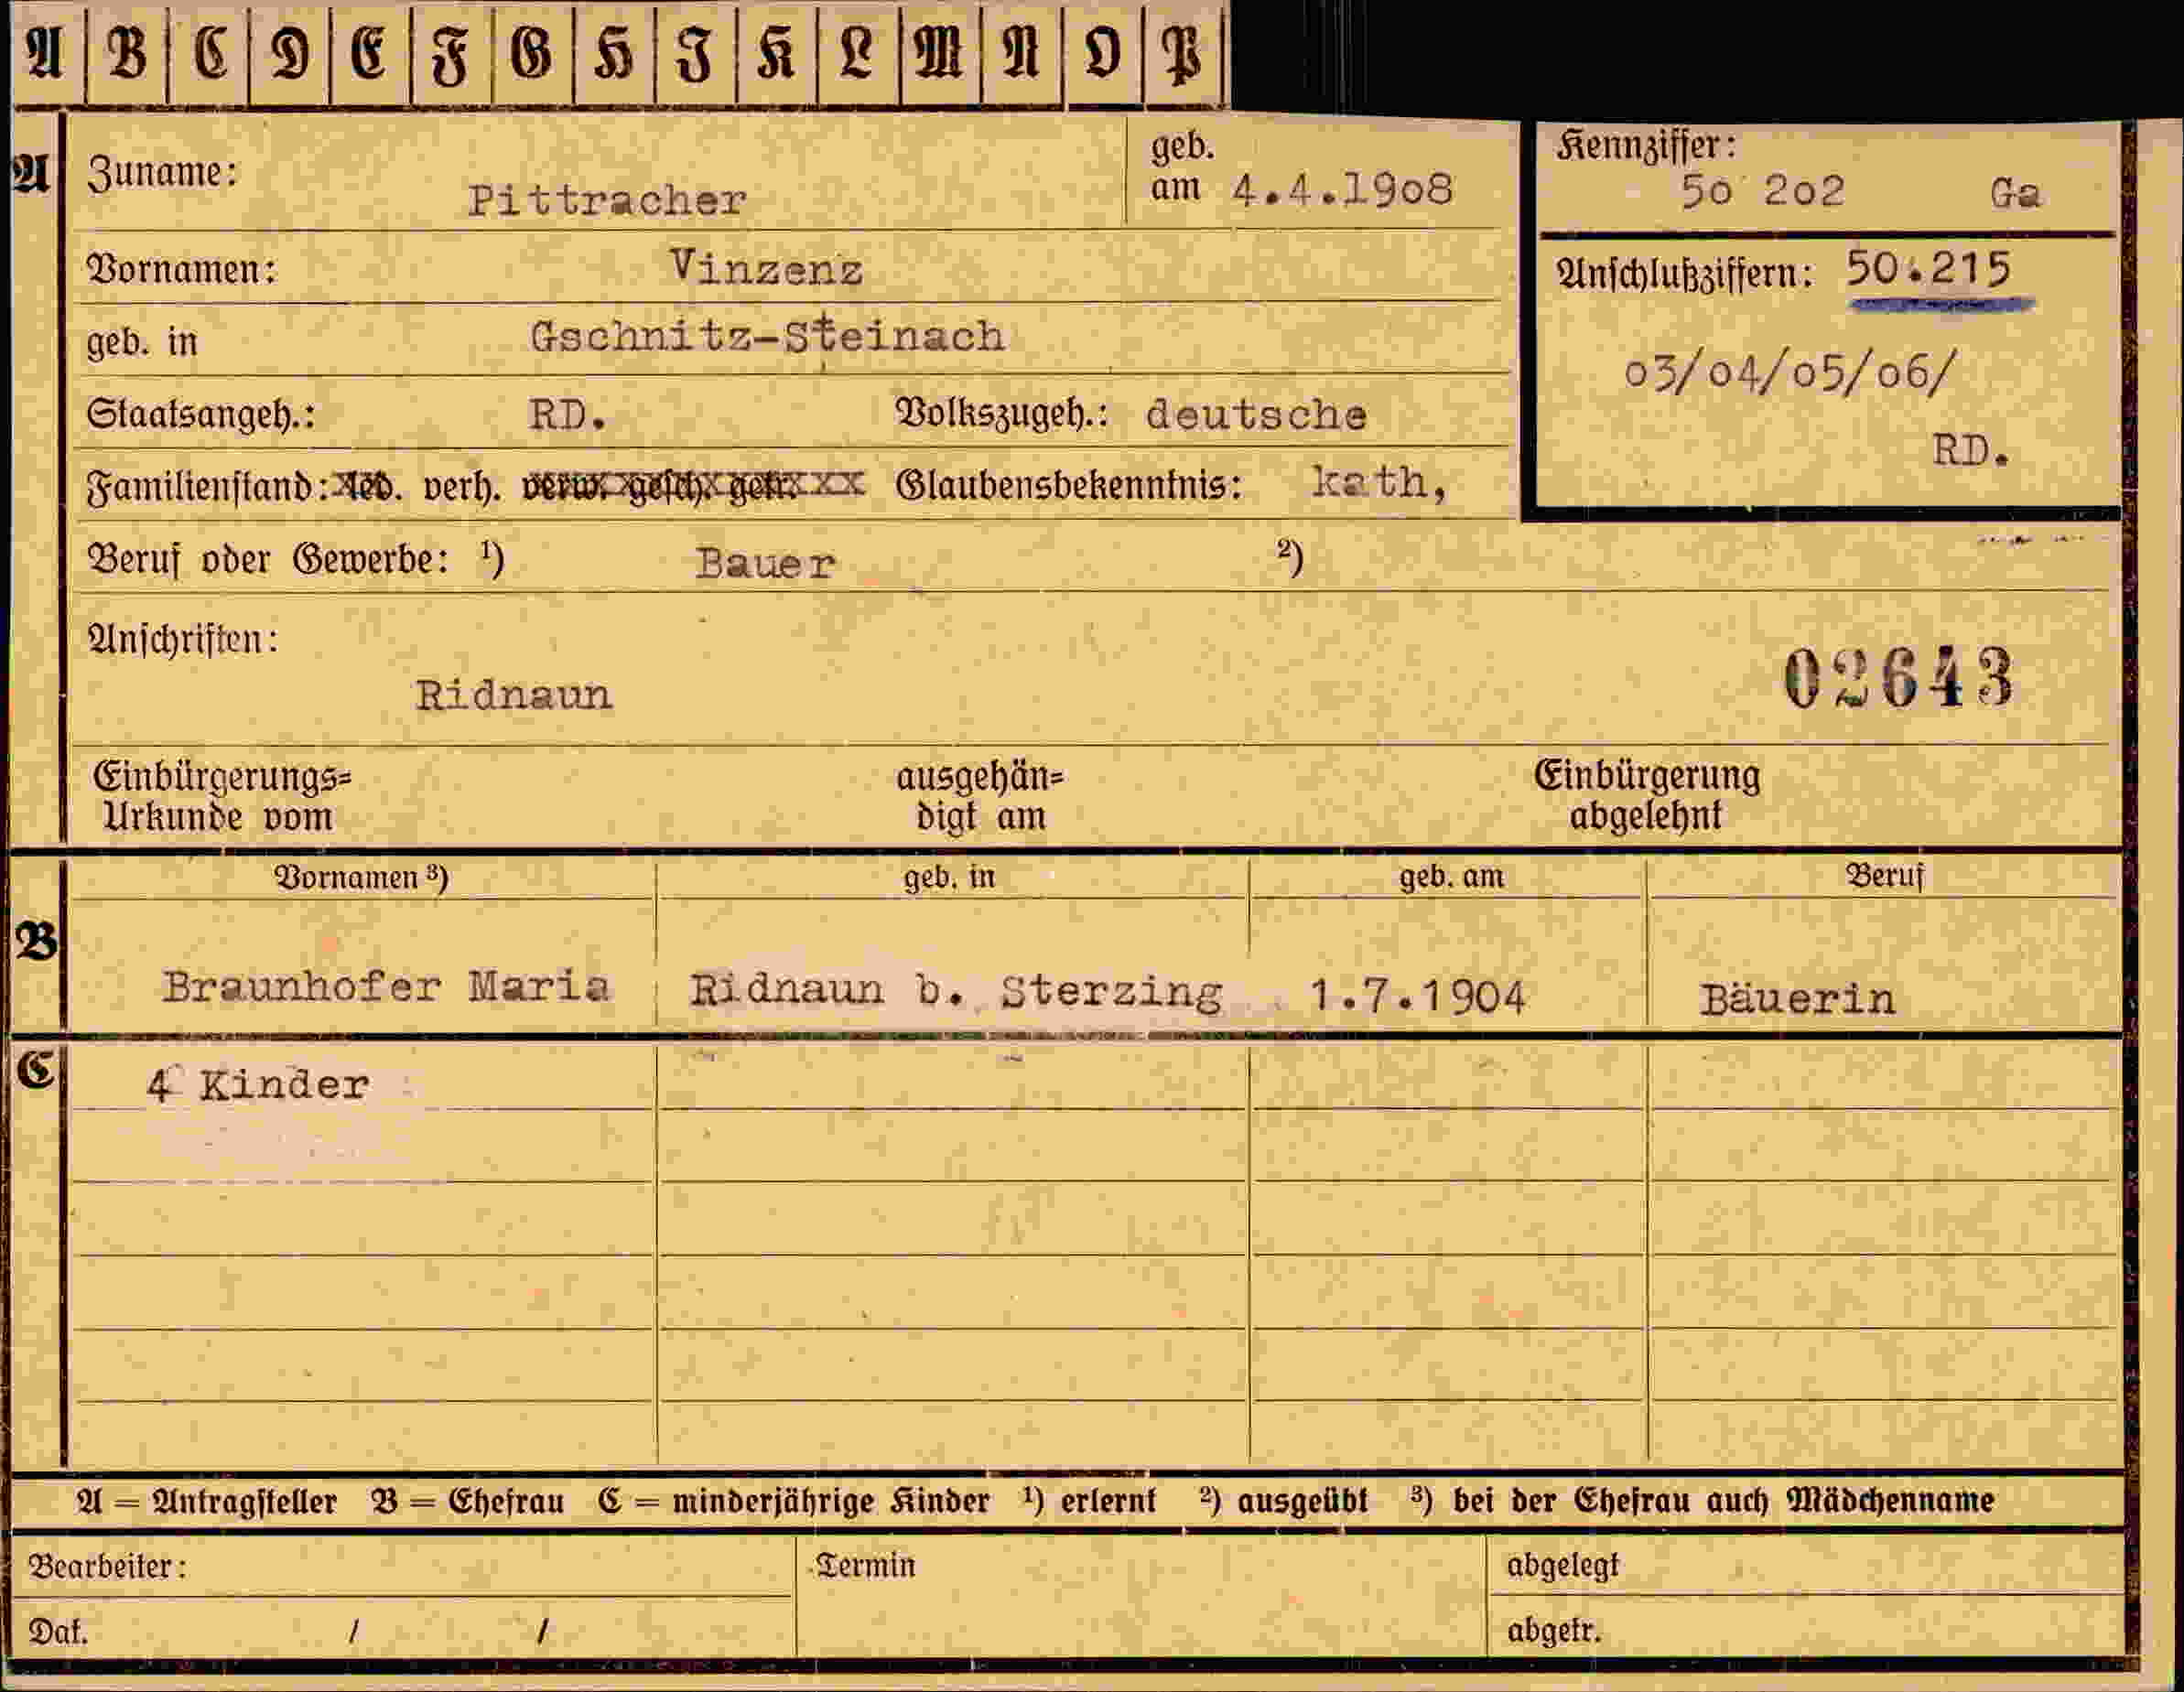 A B C D E F G H I K L M N O P
A Zuname: Pittracher geb. am 4.4.19o8
Kennziffer: 5o 2o2 Ga
Vornamen: Vinzenz
Anschlußziffern: 50.215
geb. in Gschnitz-Steinach
o3/o4/o5/o6/
Staatsangeh.: RD. Volkszugeh.: deutsche
RD.
Familienstand: led. verh. verw. gesch. getr. xx Glaubensbekenntnis: kath,
Beruf oder Gewerbe: ¹) Bauer ²)
Anschriften:
Ridnaun
02643
Einbürgerungs=
Urkunde vom
ausgehän=
digt am
Einbürgerung
abgelehnt
Vornamen ³) geb. in geb. am Beruf
B Braunhofer Maria Ridnaun b. Sterzing 1.7.1904 Bäuerin
C 4 Kinder
A = Antragsteller B = Ehefrau C = minderjährige Kinder ¹) erlernt ²) ausgeübt ³) bei der Ehefrau auch Mädchenname
Bearbeiter: Termin abgelegt
Dat. / / abgetr.